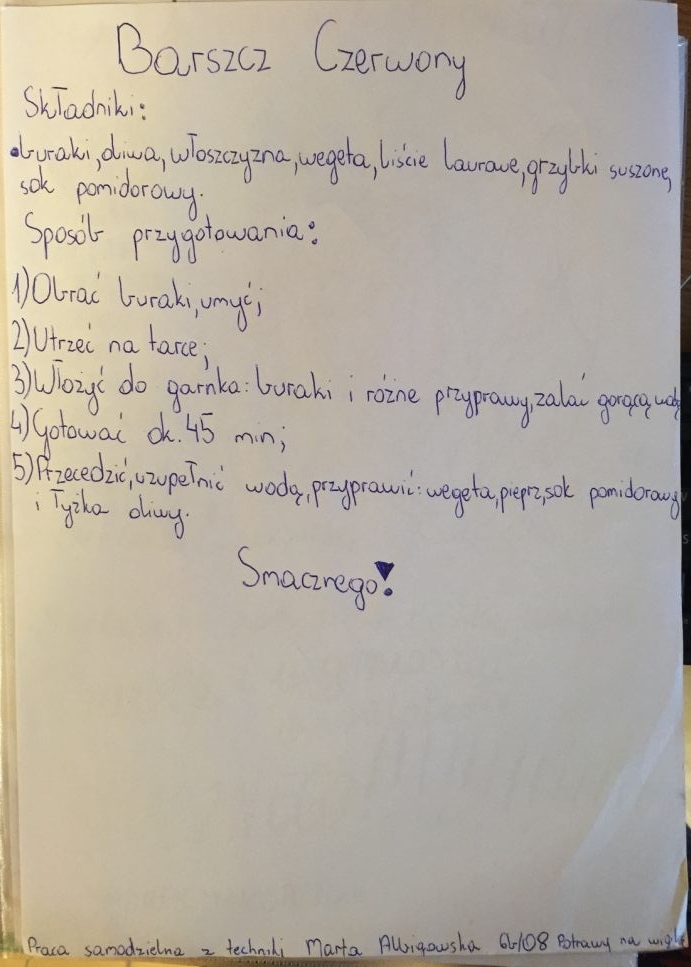 Barszcz Czerwony
Składniki:
•buraki, oliwa, włoszczyzna, wegeta, liście laurowe, grzybki suszone,
sok pomidorowy.
Sposób przygotowania:
1) Obrać buraki, umyć;
2) Utrzeć na tarce;
3) Włożyć do garnka: buraki i różne przyprawy, zalać gorącą wodą
4) Gotować ok. 45 min;
5) Przecedzić, uzupełnić wodą, przyprawić: wegeta, pieprz, sok pomidorowy
i łyżka oliwy.
Smacznego!
Praca samodzielna z techniki Marta 6b/08 Potrawy na